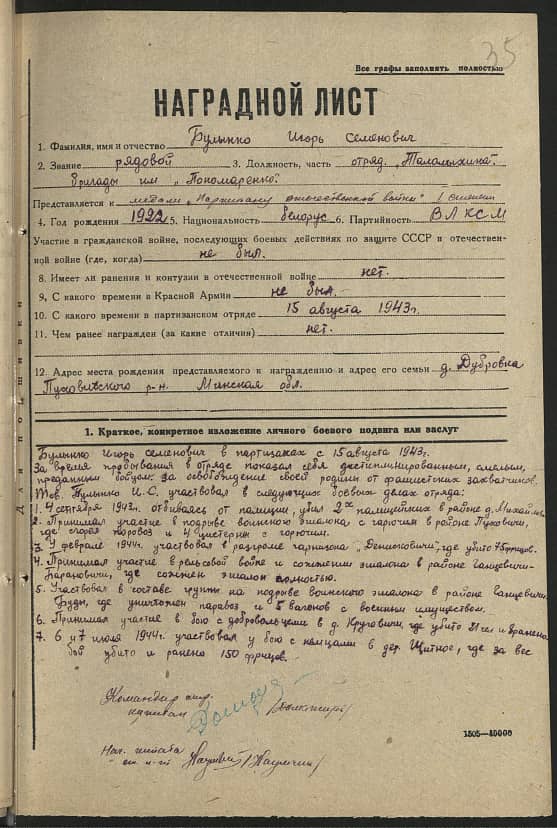 35
Все графы заполнять полностью
НАГРАДНОЙ ЛИСТ
1. Фамилия, имя и отчество Булынко Игорь Семенович
2. Звание рядовой 3. Должность, часть отряд „Талалыхина".
бригады им „Пономаренко".
Представляется к медали „Партизану отечественной войны" I степени
4. Год рождения 1922 5. Национальность белорус 6. Партийность ВЛКСМ
Участие в гражданской войне, последующих боевых действиях по защите СССР и отечествен-
ной войне (где, когда) не был.
8. Имеет ли ранения и контузии в отечественной войне нет.
9. С какого времени в Красной Армии не был.
10. С какого времени в партизанском отряде 15 августа 1943г.
11. Чем ранее награжден (за какие отличия) нет.
12. Адрес места рождения представляемого к награждению и адрес его семьи д. Дубровка
Пуховичского р-н. Минская обл.
Для подшивки
1. Краткое, конкретное изложение личного боевого подвига или заслуг
Булынко Игорь Семенович в партизанах с 15 августа 1943г.
За время пробывания в отряде показал себя дисциплинированным, смелым,
преданным бойцом за освобождение своей родины от фашистских захватчиков.
Тов. Булынко И.С. участвовал в следующих боевых делах отряда:
1. 4 сентября 1943г. отбиваясь от полиции, убил 2х полицейских в районе д. Михайлово
2. Принимал участие в подрыве воинского эшалона с горючим в районе Пуховичи,
где сгорел паровоз и 4 цистерны с горючим.
3. У феврале 1944г. участвовал в разгроме гарнизона „Денисковичи", где убито 75 фрицов.
4. Принимал участие в рельсовой войне и сожжении эшалона в районе Ганцевичи-
Барановичи, где сожжен эшалон полностью.
5. Участвовал в составе группы на подрыве воинского эшалона в районе Ганцевичи
Буды, где уничтожен паравоз и 5 вагонов с военным имуществом.
6. Принимал участие в бою с добровольцами в д. Круговичи, где убито 21 чел и
7. 6 и 7 июля 1944г. участвовал у бою с немцами в дер. Щитное, где за весь
бой убито и ранено 150 фрицов.
Командир отр.
Нач. штаба
1505—40000